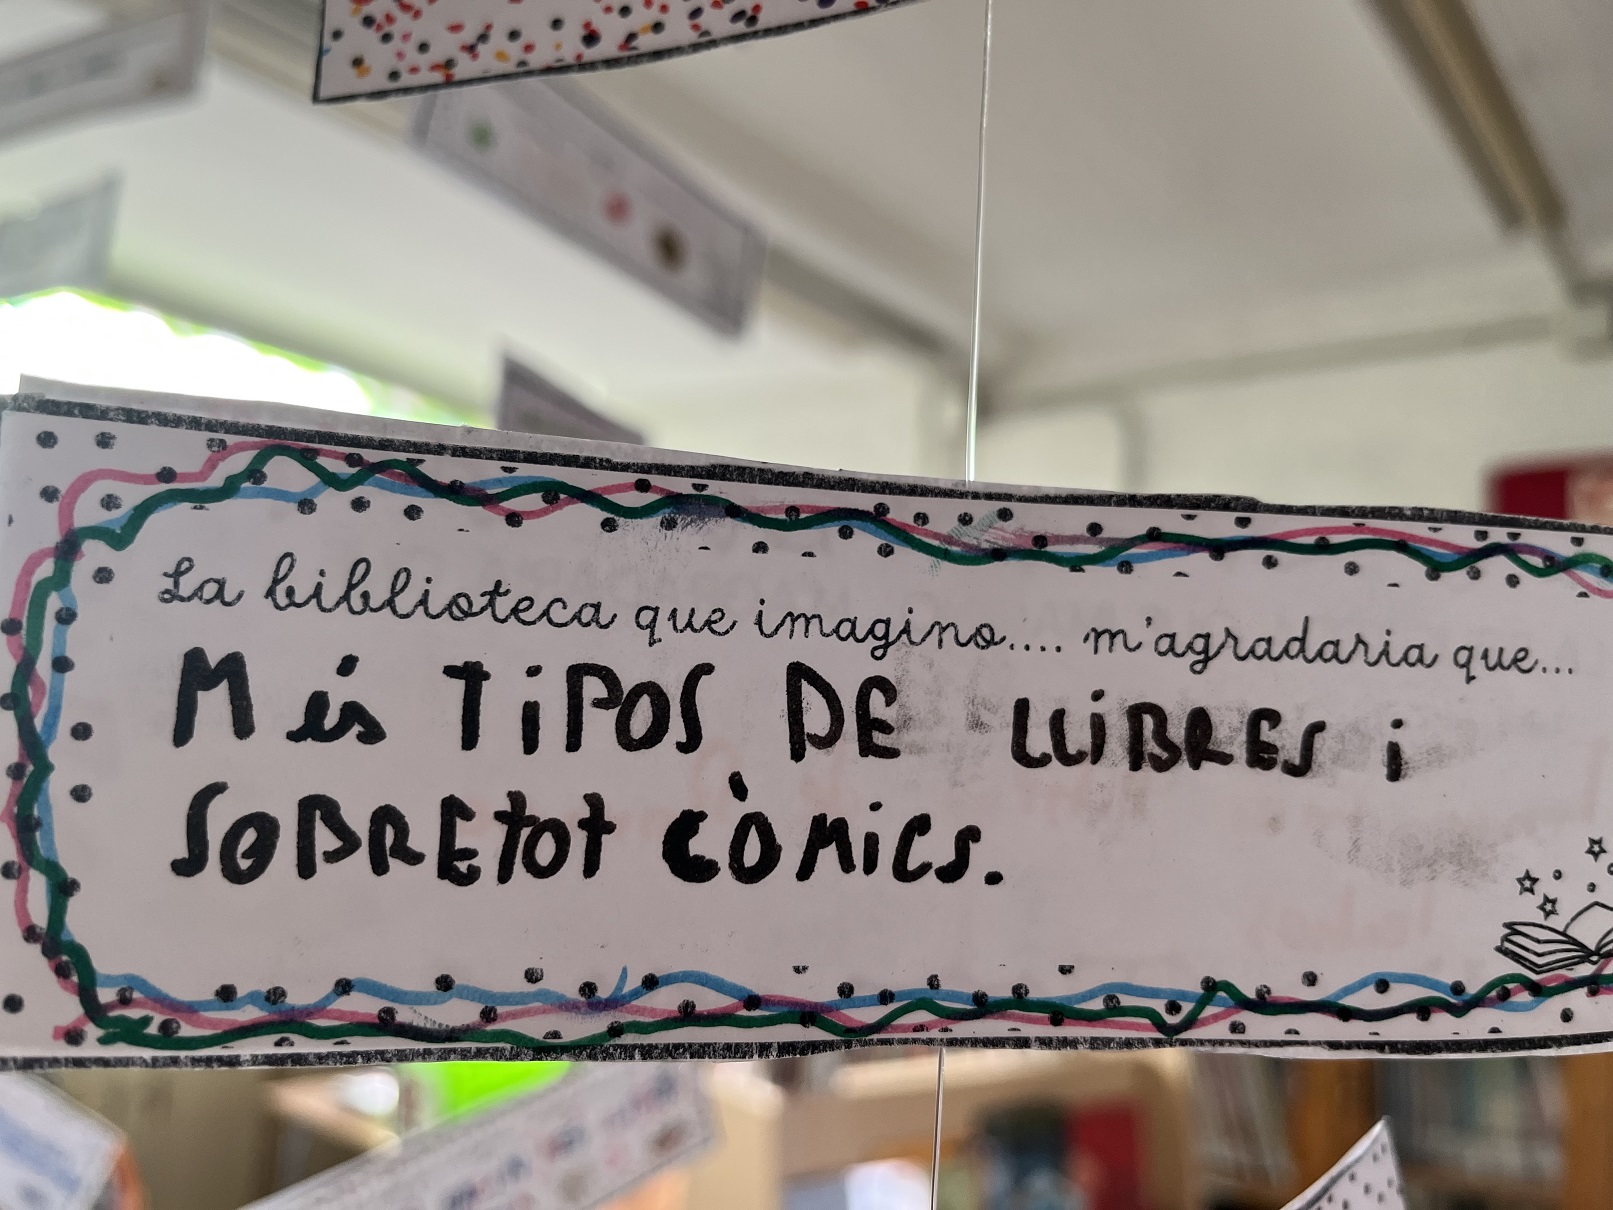 La biblioteca que imagino.... m'agradaria que...
Més TiPOS DE LLiBRES i
SOBREtot CÒMiCS.